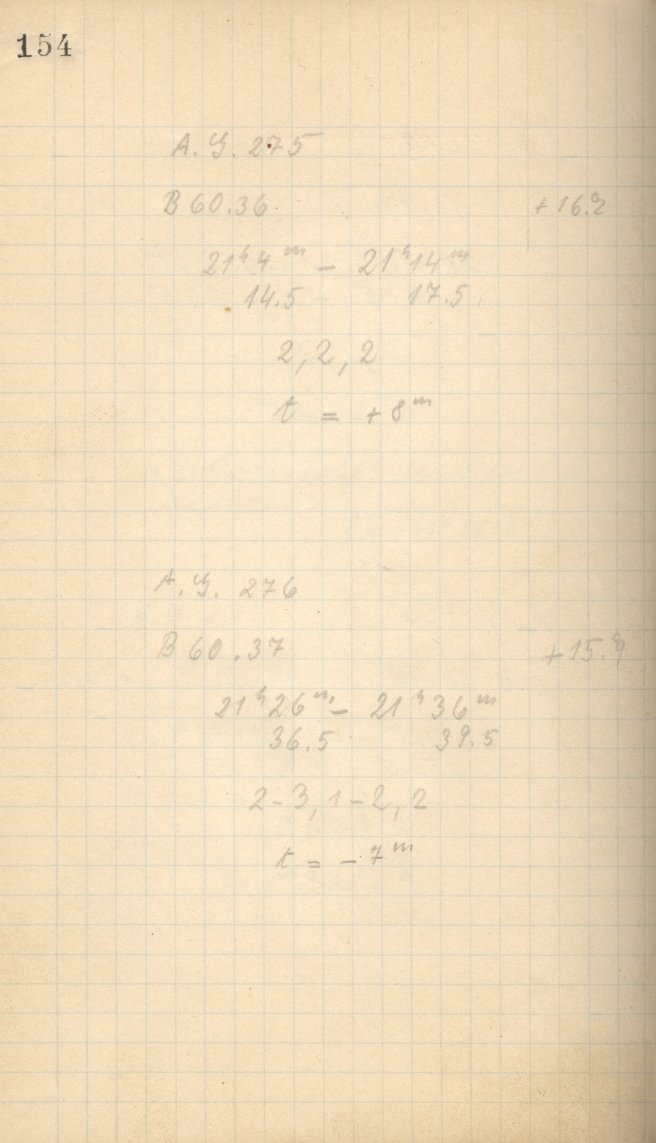 154
A. G. 275
B 60.36 +16.2
21ʰ 4ᵐ – 21ʰ 14ᵐ
14.5 17.5
2, 2, 2
t = +8ᵐ
A. G. 276
B 60.37 +15.9
21ʰ 26ᵐ – 21ʰ 36ᵐ
36.5 39.5
2-3, 1-2, 2
t = -7ᵐ